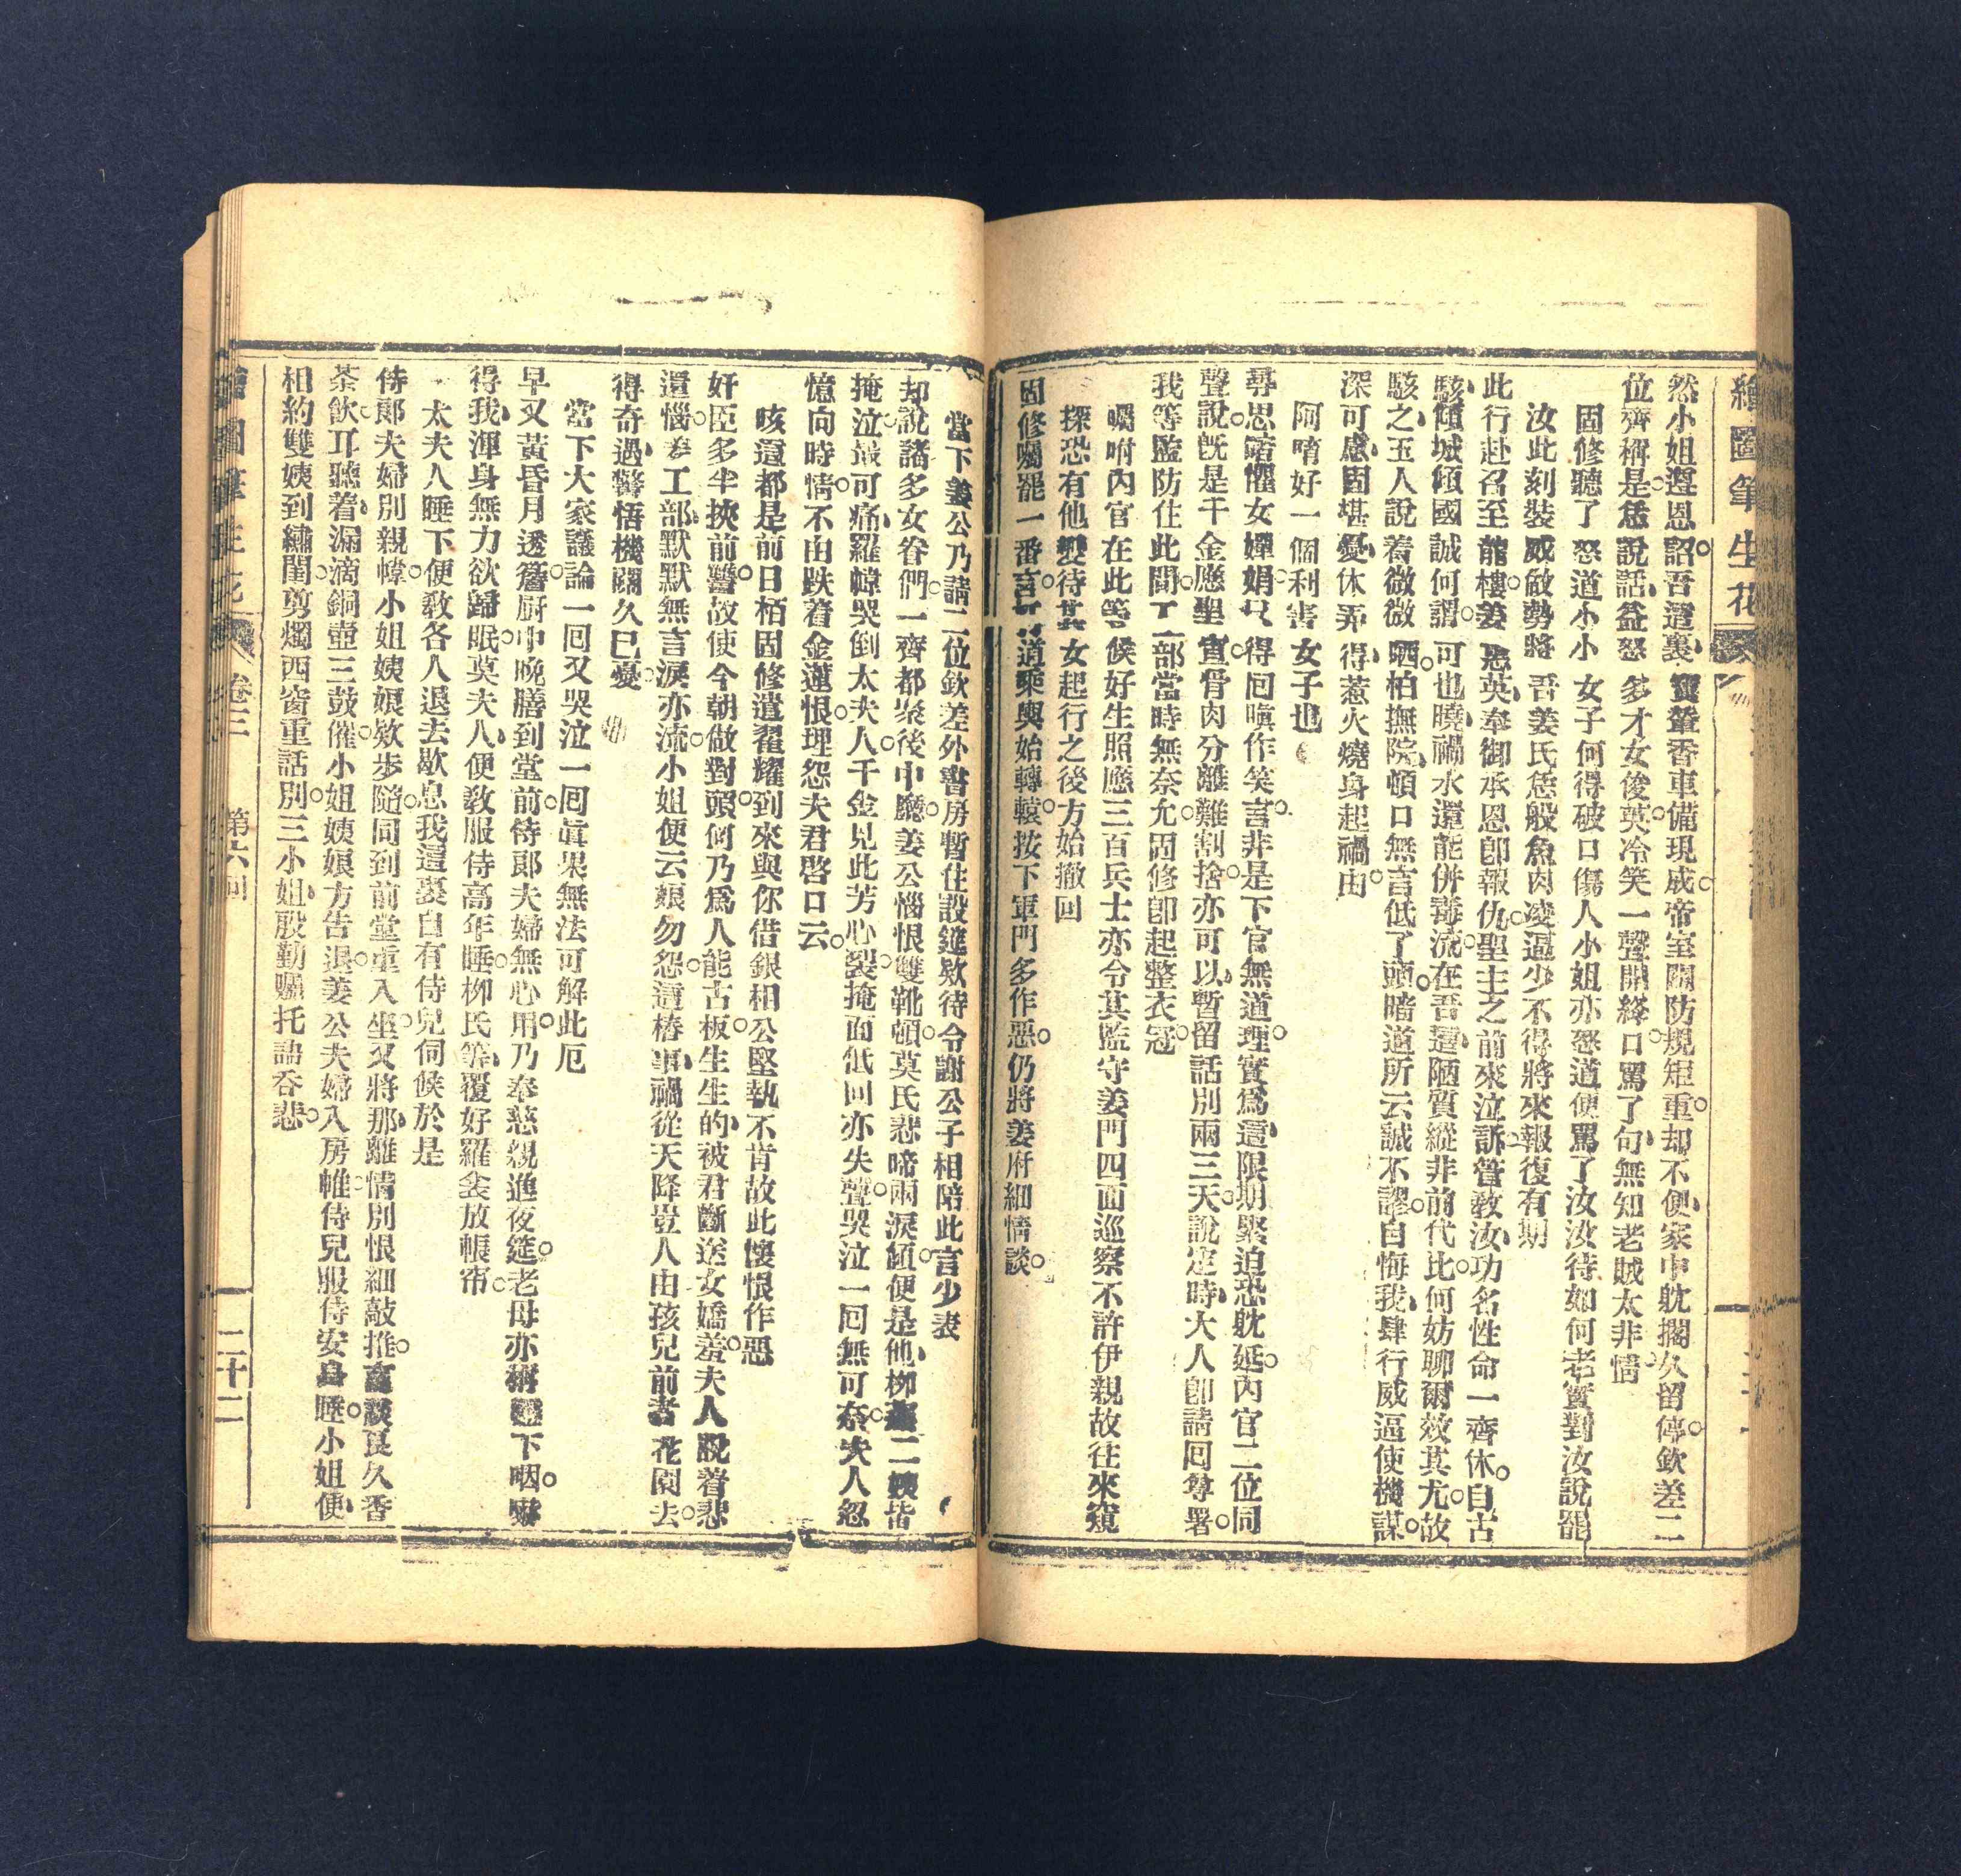 繪圖筆生花
然小姐遵恩詔吾這裏寶輦香車備現成帝室關防規矩重却不便家中躭擱久留停欽差二
位齊稱是恁說話益怒多才女俊英冷笑一聲開絳口罵了句無知老賊太非情
固修聽了怒道小小女子何得破口傷人小姐亦怒道便罵了汝汝待如何老實對汝說罷
汝此刻裝威敵勢將吾姜氏恁般魚肉凌逼少不得將來報復有期
此行赴召至龍樓姜惠英奉御承恩卽報仇聖主之前來泣訴管敎汝功名性命一齊休自古
駭傾城傾國誠何謂可也曉禍水還能併毒流在吾這陋質縱非前代比何妨聊爾效其尤故
駭之玉人說着微微哂柏撫院頓口無言低了頭暗道所云誠不謬自悔我肆行威逼使機謀
深可慮固堪憂休弄得惹火燒身起禍由
阿唷好一個利害女子也
尋思暗懼女嬋娟只得回嗔作笑言非是下官無道理實爲這限期緊迫恐躭延內官二位同
聲說旣是千金應聖宣骨肉分離難割捨亦可以暫留話別兩三天說定時大人卽請囘尊署
我等監防住此間了一部當時無奈允固修卽起整衣冠
囑咐內官在此等候好生照應三百兵士亦令其監守姜門四面巡察不許伊親故往來窺
探恐有他變待其女起行之後方始撤回
固修囑罷一番言 道乘輿始轉轅按下軍門多作惡仍將姜府細情談
當下姜公乃請二位欽差外書房暫住設筵欵待令謝公子相陪此言少表
却說諸多女眷們一齊都聚後中廳姜公惱恨雙靴頓莫氏悲啼兩淚傾便是他柳 二姨皆
掩泣最可痛羅幃哭倒太夫人千金見此芳心裂掩面低回亦失聲哭泣一囘無可奈夫人忽
憶向時情不由跌着金蓮恨埋怨夫君啓口云
咳這都是前日栢固修遣翟耀到來與你借銀相公堅執不肯故此懷恨作惡
奸臣多半挾前讐故使今朝做對頭何乃爲人能古板生生的被君斷送女嬌羞夫人說着悲
還惱 工部默默無言淚亦流小姐便云孃勿怨這樁事禍從天降豈人由孩兒前者花園去
得奇遇警悟機關久已憂
當下大家議論一囘又哭泣一囘眞果無法可解此厄
早又黃昏月透簷厨中晚膳到堂前侍郎夫婦無心用乃奉慈親進夜筵老母亦樹 下咽 嚇
得我渾身無力欲歸眠莫夫人便敎服侍高年睡柳氏等覆好羅衾放帳帘
太夫人睡下便敎各人退去歇息我這裏自有侍兒伺候於是
侍郎夫婦別親幃小姐姨娘欵步隨同到前堂重入坐又將那離情別恨細敲推 談良久香
茶飲耳聽着漏滴銅壺三鼓催小姐姨娘方告退姜公夫婦入房帷侍兒服侍安身睡小姐便
相約雙姨到繡閨剪燭西窗重話別三小姐殷勤囑托語吞悲
繪圖筆生花 卷三 第六回 二十二